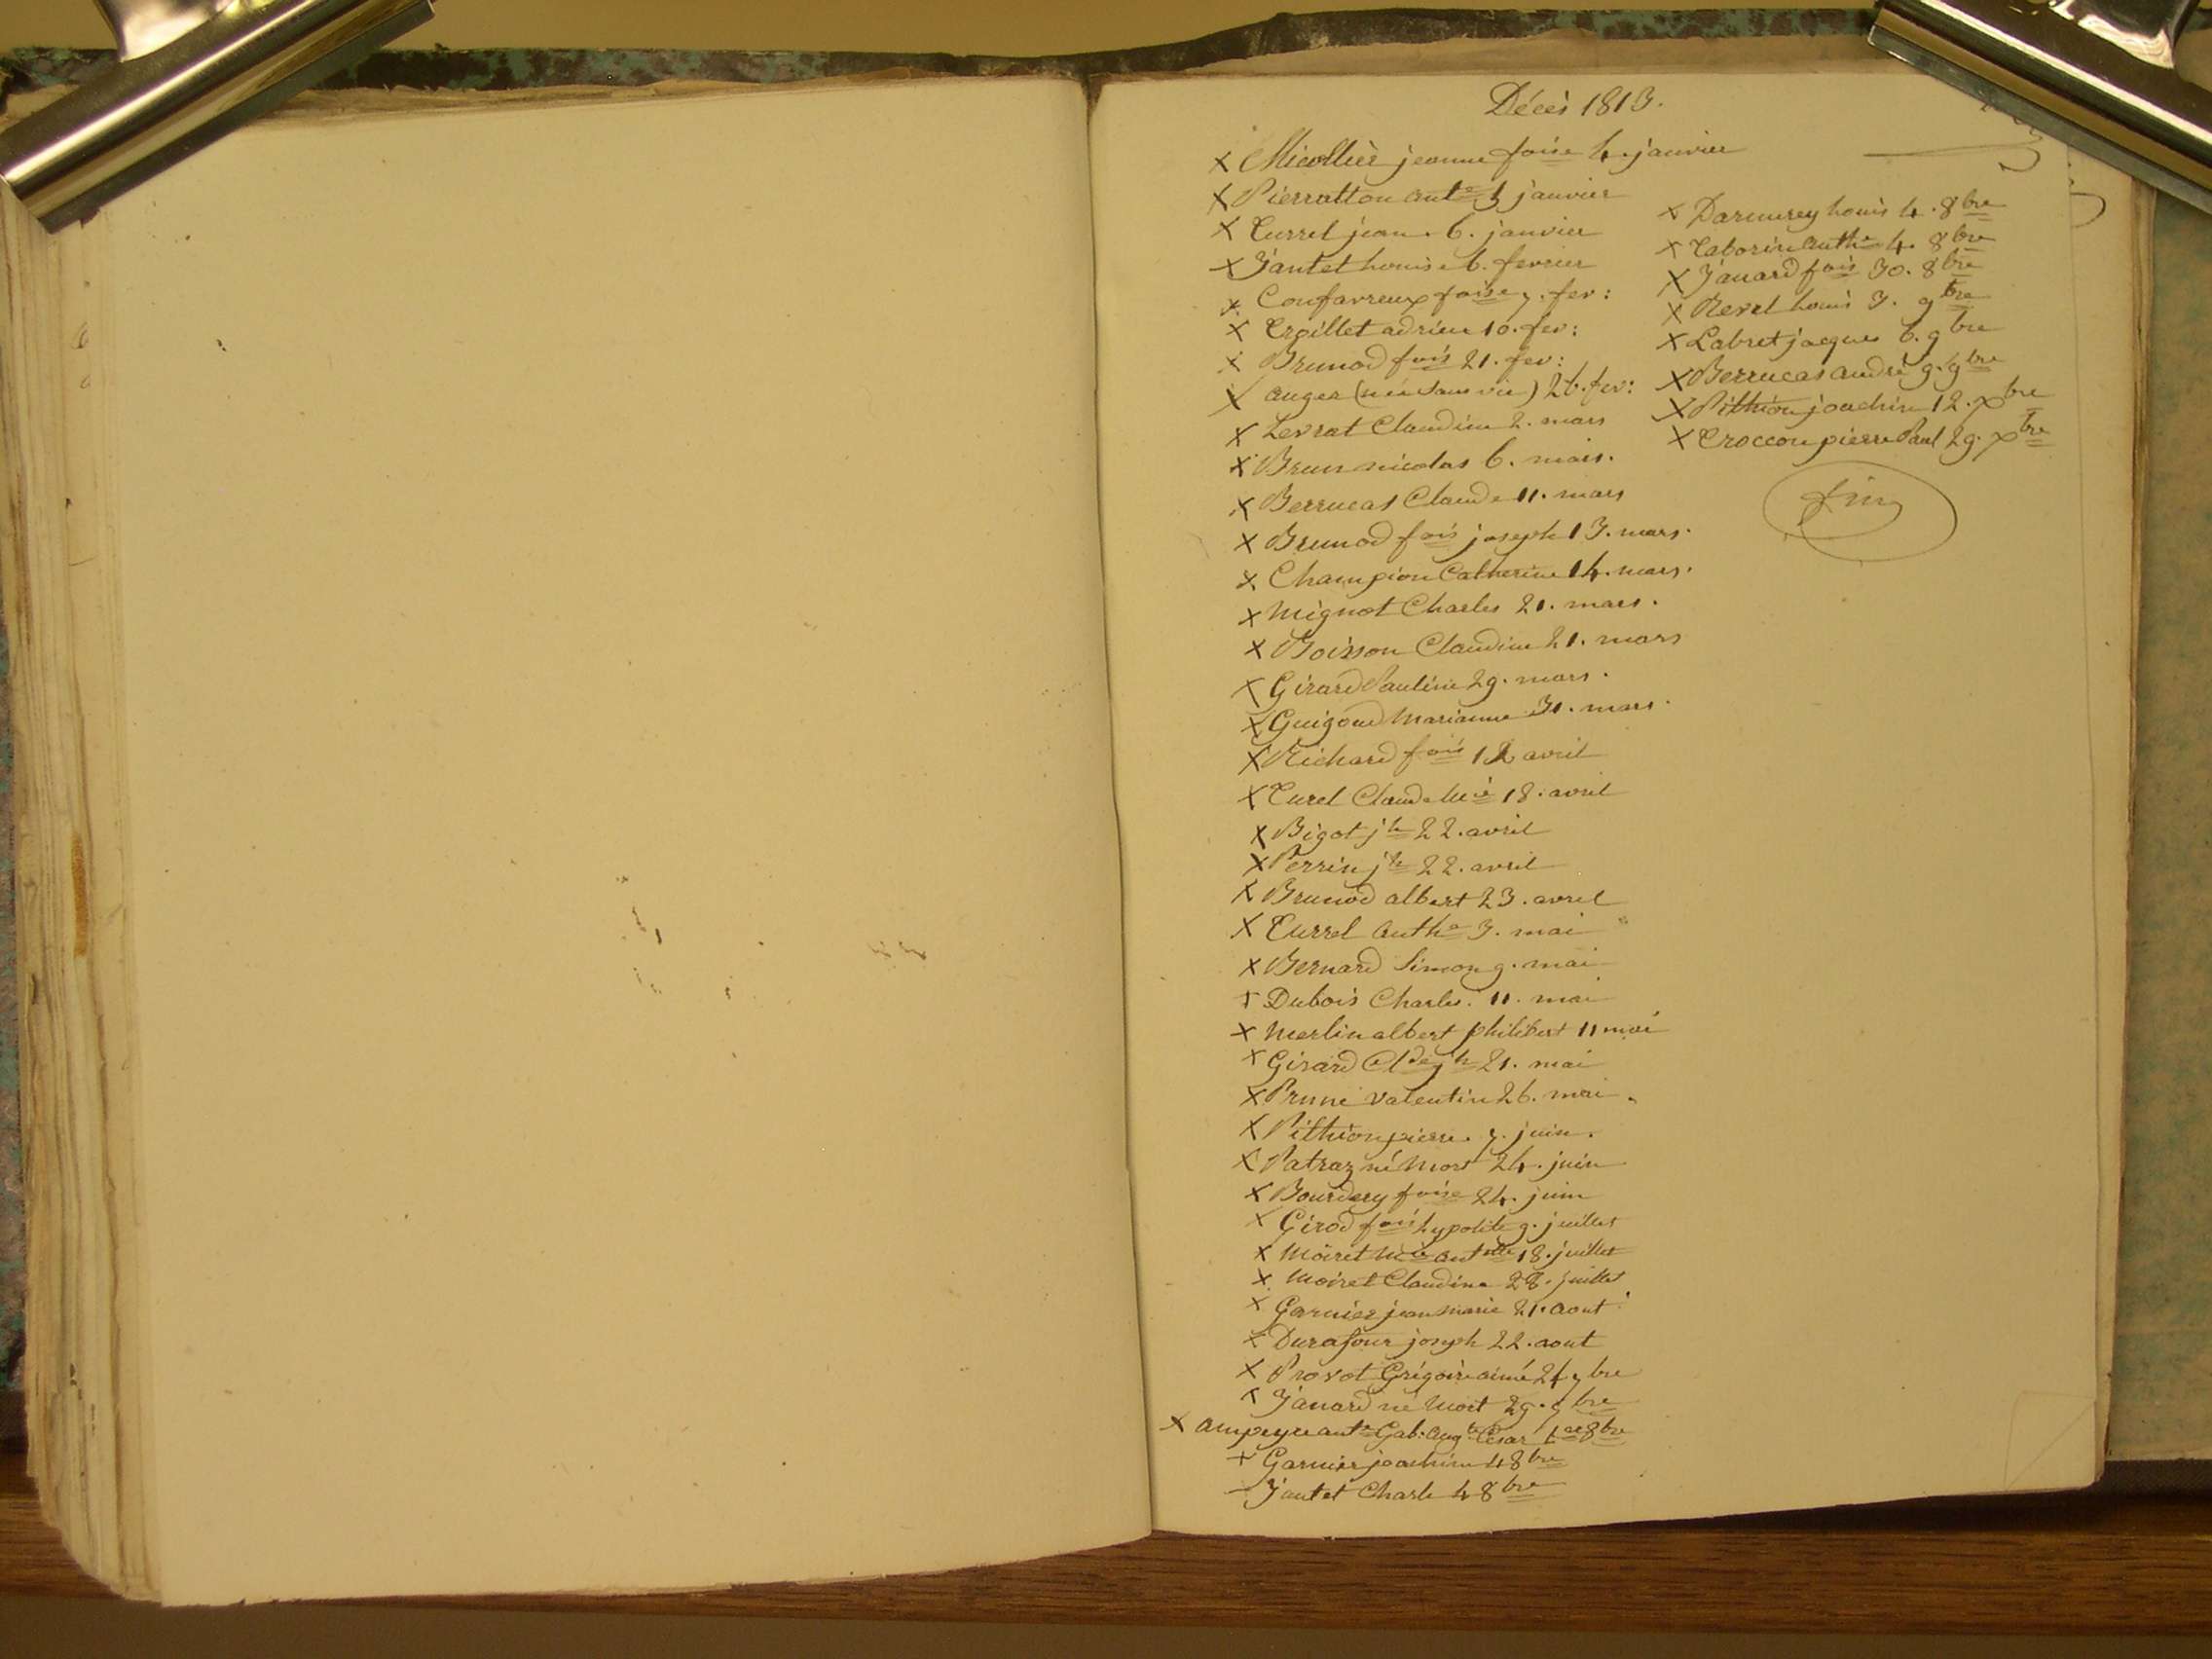 Décès 1813.
X Micollier jeanne foise 4. janvier
X Pierratton ante 5 janvier
X Turrel jean. 6. janvier
X Jantet Louise 6. fevrier
X Confavreux foise 7. fev:
X Croillet adrien 10. fev:
X Brunod fois 21. fev:
X auger (née sans vie) 26. fev:
X Levrat Claudine 2. mars
X Brun nicolas 6. mars.
X Berrucas Claude 11. mars
X Brunod fois joseph 13. mars.
X Champion Catherine 14. mars.
X Mignot Charles 21. mars.
X Boisson Claudine 21. mars
X Girard Pauline 29. mars.
X Guigoud Marianne 31. mars.
X Richard fois 12 avril
X Turel Claude Mie 18. avril
X Bigot jh 22. avril
X Perrin jh 22. avril
X Brunod albert 23. avril
X Turrel anthe 3. mai
X Bernard Simon 9. mai
X Dubois Charles. 11. mai
X Merlin albert philibert 11 mai
X Girard Clde jh 21. mai
X Prune Valentin 26. mai.
X Pithion pierre. 7. juin.
X Patraz né Mort 24. juin
X Bourdery foise 24. juin
X Girod fois hypolite 9. juillet
X Moiret Mie antette 18. juillet
X Moiret Claudine 28. juillet
X Garnier jean Marie 21. aout
X Durafour joseph 22. aout
X Provot Grégoire aimé 24 7bre
X Janard né Mort 29. 7bre
X ampeyre ante Gab: augte César 1er 8bre
X Garnier joachim 4 8bre
Jantet Charle 4 8bre
X Darmurey Louis 4. 8bre
X Taborin anthe 4. 8bre
X Janard fois 30. 8bre
X Revel Louis 3. 9bre
X Labret jacques 6. 9bre
X Berrucas andré 9. 9bre
X Pithion joachim 12. xbre
X Croccon pierre Paul 29. xbre
fin